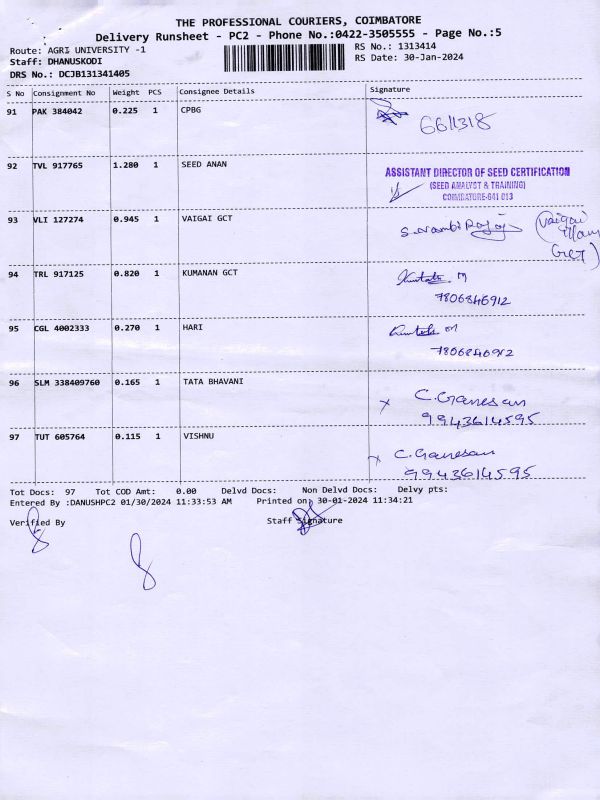 THE PROFESSIONAL COURIERS, COIMBATORE
Delivery Runsheet - PC2 - Phone No.:0422-3505555 - Page No.:5
Route: AGRI UNIVERSITY -1
RS No.: 1313414
Staff: DHANUSKODI
RS Date: 30-Jan-2024
DRS No.: DCJB131341405
S No Consignment No Weight PCS Consignee Details Signature
91 PAK 384042 0.225 1 CPBG
6611318
92 TVL 917765 1.280 1 SEED ANAN
ASSISTANT DIRECTOR OF SEED CERTIFICATION
(SEED ANALYST & TRAINING)
COIMBATORE-641 013
93 VLI 127274 0.945 1 VAIGAI GCT
S. Nambi Rajaj (Vaigai
GCT)
94 TRL 917125 0.820 1 KUMANAN GCT
7806846912
95 CGL 4002333 0.270 1 HARI
7806846912
96 SLM 338409760 0.165 1 TATA BHAVANI
x C. Ganesan
9943614595
97 TUT 605764 0.115 1 VISHNU
x C. Ganesan
9943614595
Tot Docs: 97 Tot COD Amt: 0.00 Delvd Docs: Non Delvd Docs: Delvy pts:
Entered By :DANUSHPC2 01/30/2024 11:33:53 AM Printed on 30-01-2024 11:34:21
Verified By Staff Signature